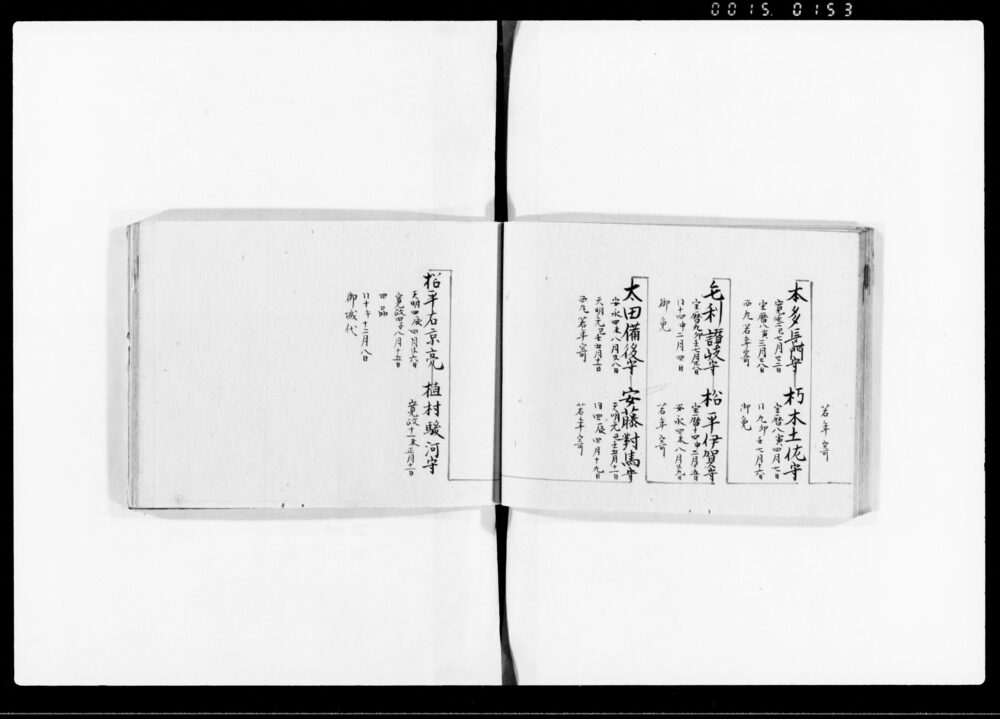 0015. 0153
若年寄
本多長門守
寛延三巳七月廿三日
宝暦八寅三月廿八日
西丸若年寄
朽木土佐守
宝暦八寅四月七日
日九卯壬七月十六日
御免
毛利讃岐守
宝暦九卯壬七月廿八日
日十四申二月四日
御免
松平伊賀守
宝暦十四申二月五日
安永四未八月廿九日
若年寄
太田備後守
安永四未八月廿八日
天明元丑壬五月十一日
西丸若年寄
安藤對馬守
天明元丑壬五月十一日
日四辰四月十九日
若年寄
松平右京亮
天明四辰四月廿六日
寛政四子八月十五日
四品
日十午十二月八日
御城代
植村駿河守
寛政十一未正月十一日